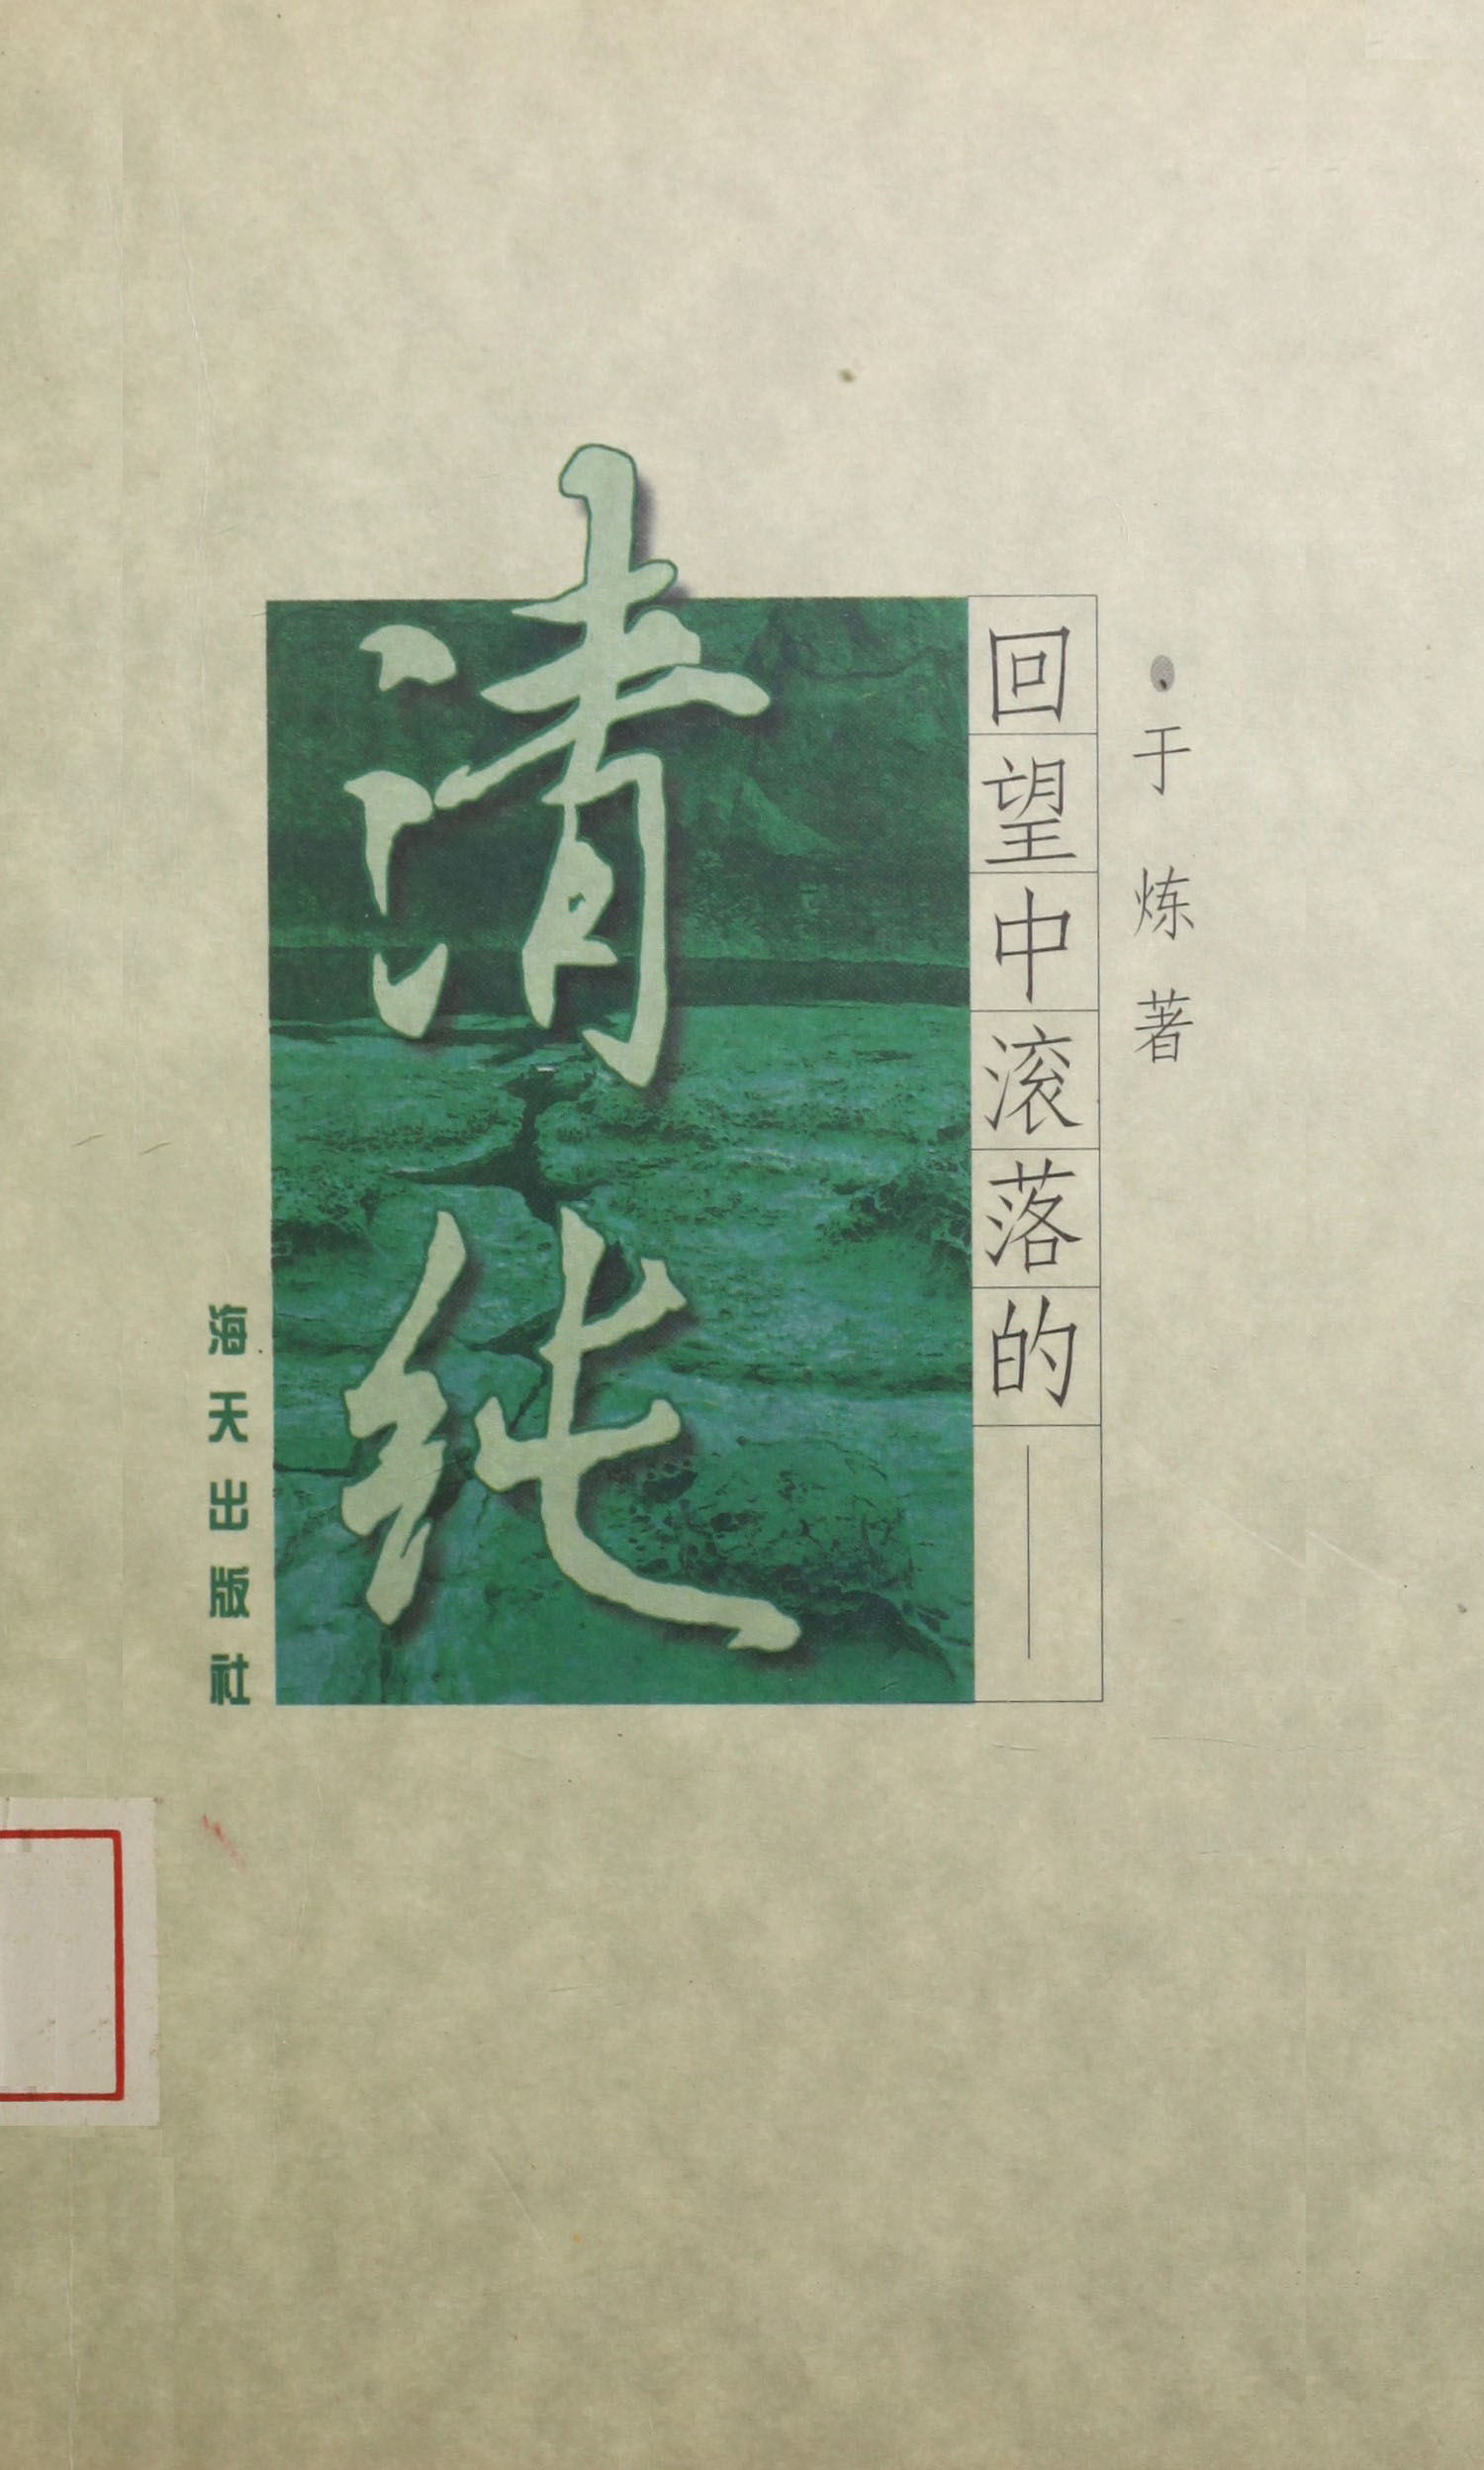 于炼著
回望中滚落的——
清纯
海天出版社